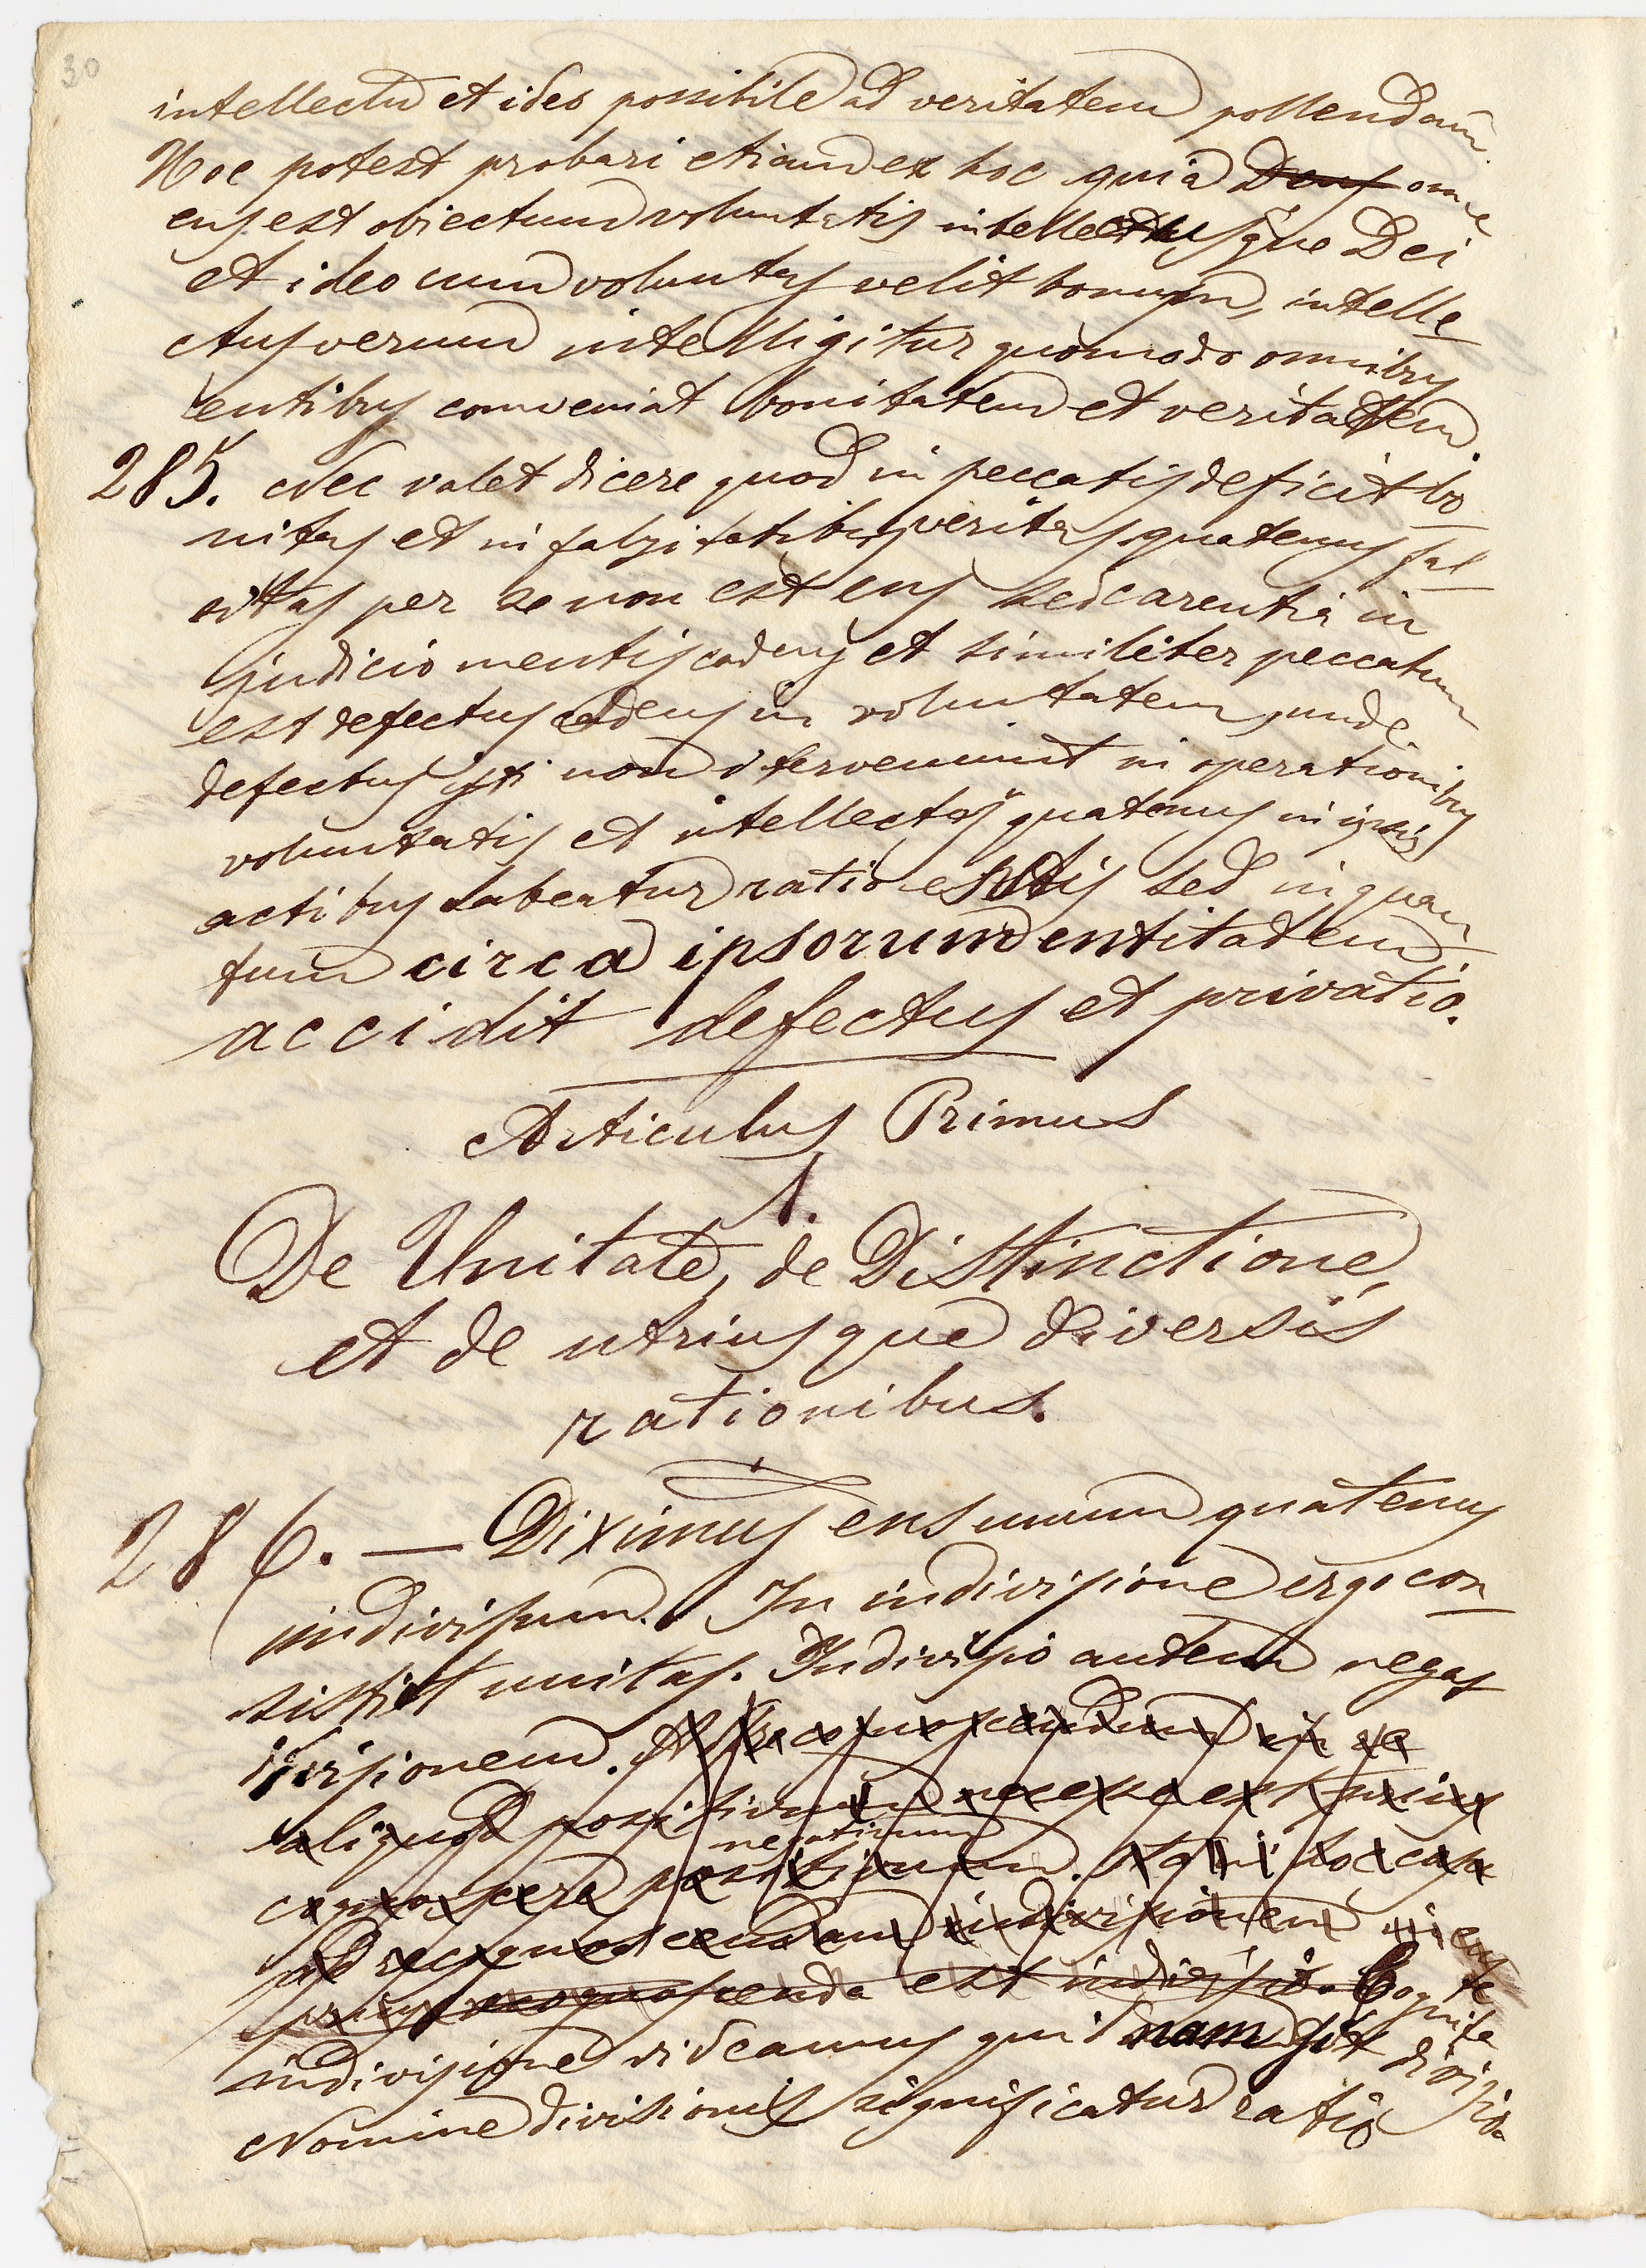 30
intellectu et ideo possibile ad veritatem pollendam
Hoc potest probari etiam ex hoc quia Deus omne
ens est obiectum voluntatis intellectusque Dei
et ideo cum voluntas velit bonum, intelle
ctus verum intelligitur quomodo omnibus
entibus conveniat bonitatem et veritatem.
285. Nec valet dicere quod in peccatis deficit bo
nitas et in falsitatibus veritas, quatenus fal
sitas per se non est ens sed carentia in
judicio mentis cadens et similiter peccatum
est defectus cadens in voluntatem, unde
defectus isti non interveniunt in operationibus
voluntatis et intellectus quatenus in ipsis
actibus habeatur ratio entis sed in quan
tum circa ipsorum entitatem
accidit defectus et privatio.
Articulus Primus
1.
De Unitate, de Distinctione,
et de utriusque diversis
rationibus.
286. — Diximus ens unum quatenus
indivisum. In indivisione ergo con
sistit unitas. Indivisio autem negat
divisionem. cognoscendum
aliquod positivum necesse est prius
negativum
cognoscere positivum. Atqui hoc
ad recognoscendam indivisionem
prius recognoscenda est indivisio. Cognita
indivisione videamus quidnam sit divisio
Nomine divisionis significatur ratio